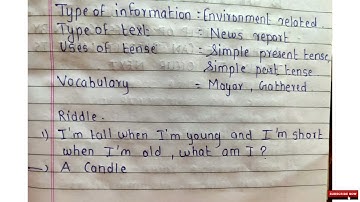 Type of information = Environment related
Type of text = News report
Uses of tense = Simple present tense,
Simple past tense
Vocabulary = Mayor, Gathered
Riddle -
1) I'm tall when I'm young and I'm short
when I'm old, what am I?
→ A Candle
SUBSCRIBE NOW